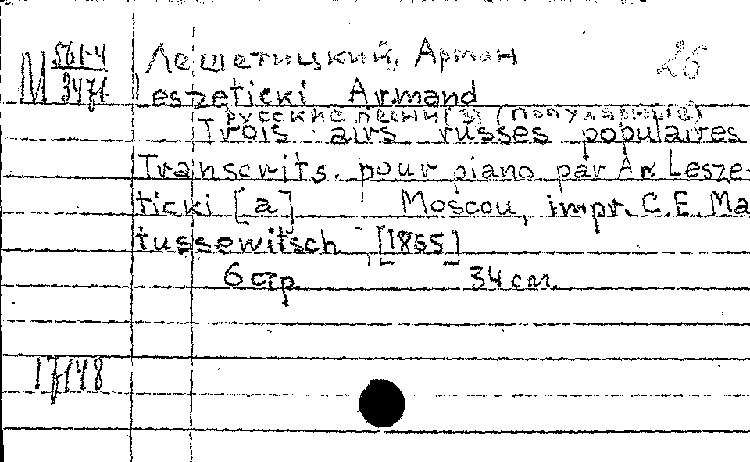 М 561-4 Лешетицкий, Арман 26
3471 Leszeticki Armand
русские песни (3) (популярные)
Trois airs russes populaires
Transcrits. pour piano par Ar. Lesze-
ticki [a] Moscou, impr. C. E. Ma
tussewitsch [1855]
6 стр. 34 см.
17148